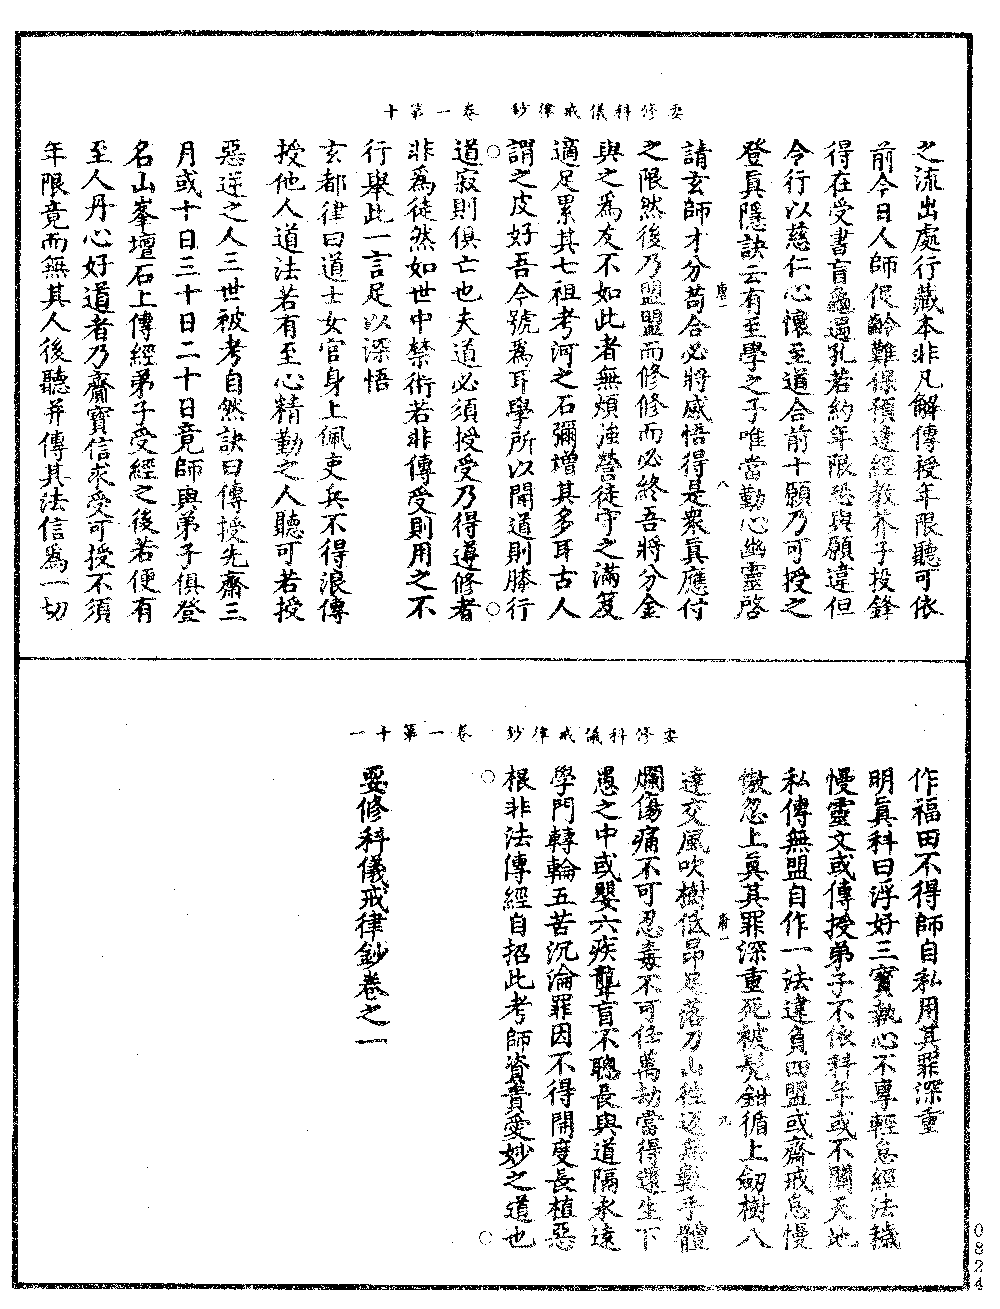 要修科儀戒律鈔　卷一第十
之流出處行藏本非凡解傳授年限聽可依
前今日人師促齡難保預達經教芥子投鋒
得在受書盲龜遇孔若約年限恐與願違但
令行以慈仁心懷至道合前十願乃可授之
登真隱訣云有至學之子唯當勤心幽靈啓
請玄師才分苟合必將感悟得是衆真應付
之限然後乃盟盟而修修而必終吾將分金
與之為友不如此者無煩強營徒守之滿笈
適足累其七祖考河之石彌增其多耳古人
謂之皮好吾今號為耳學所以聞道則勝行
道寂則俱亡也夫道必須授受乃得遵修者
非為徒然如世中禁術若非傳受則用之不
行舉此一言足以深悟
玄都律曰道士女官身上佩吏兵不得浪傳
授他人道法若有至心精勤之人聽可若授
惡逆之人三世被考自然訣曰傳授先齋三
月或十日三十日二十日竟師與弟子俱登
名山峯壇石上傳經弟子受經之後若便有
至人丹心好道者乃齎寶信求受可授不須
年限竟而無其人後聽并傳其法信為一切
唐一
八
要修科儀戒律鈔　卷一第十一
作福田不得師自私用其罪深重
明真科曰浮好三寶執心不專輕怠經法穢
慢靈文或傳授弟子不依科年或不關天地
私傳無盟自作一法違負四盟或齋戒怠慢
傲忽上真其罪深重死被髡鉗循上劒樹八
達交風吹樹低昂足落刀山往返無數手體
爛傷痛不可忍毒不可任萬劫當得還生下
愚之中或嬰六疾聾盲不聰長與道隔永遠
學門轉輪五苦沉淪罪因不得開度長植惡
根非法傳經自招此考師資貴愛妙之道也
唐一
九
要修科儀戒律鈔卷之一
0824